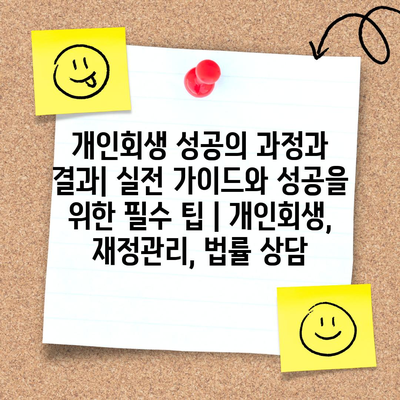 개인회생 성공의 과정과
결과| 실전 가이드와 성공을
위한 필수 팁 | 개인회생,
재정관리, 법률 상담